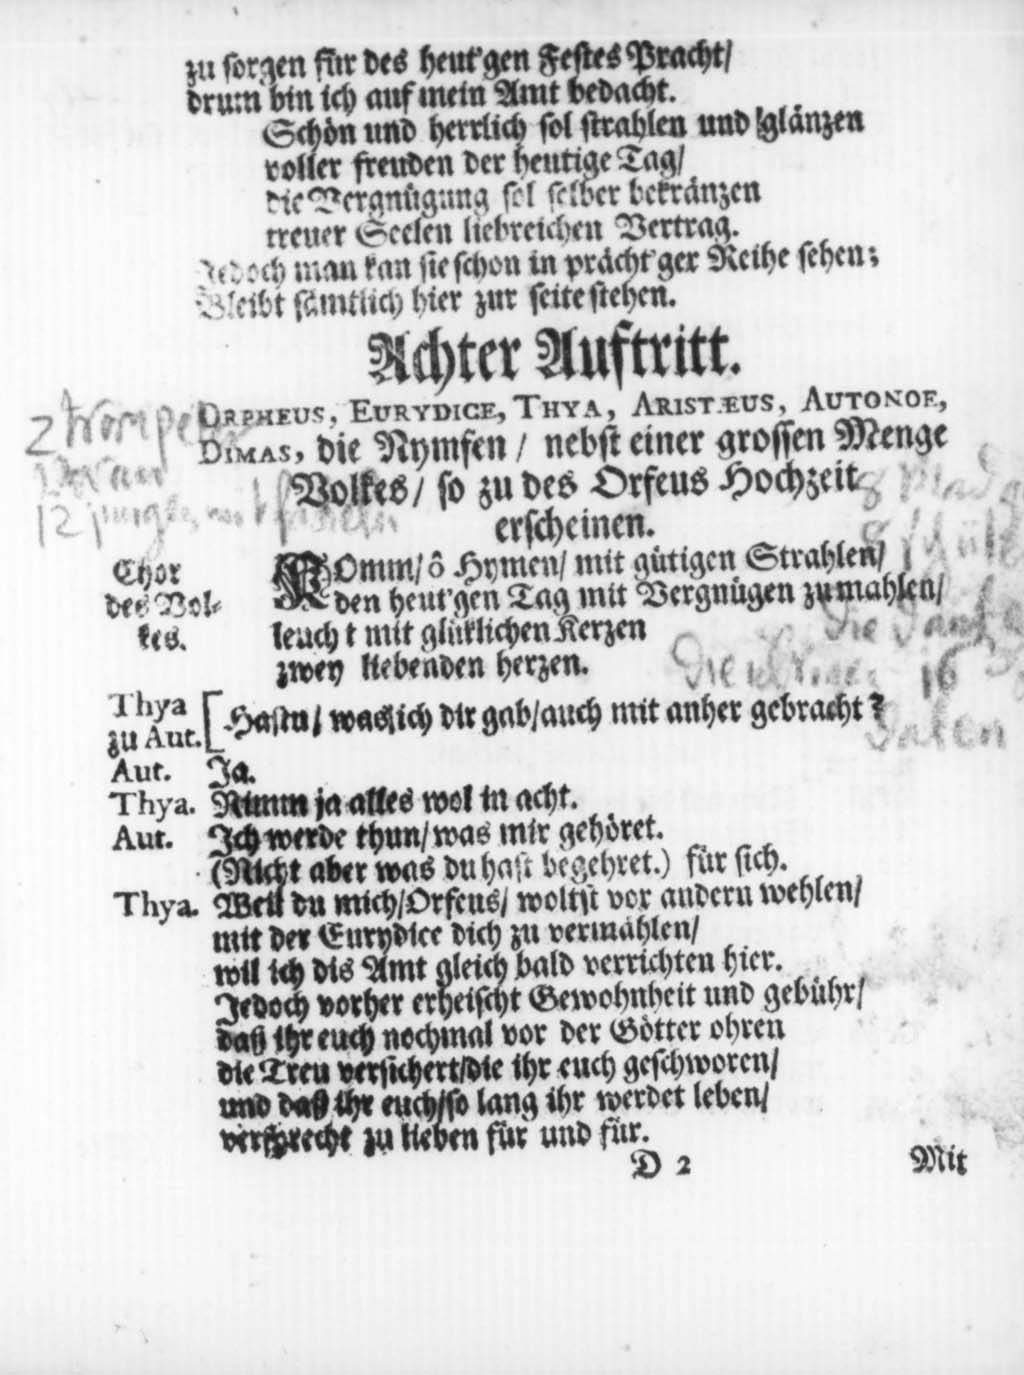 zu sorgen für des heut'gen Festes Pracht/
drum bin ich auf mein Amt bedacht.
Schön und herrlich sol strahlen und glänzen
voller freuden der heutige Tag/
die Vergnügung sol selber bekränzen
treuer Seelen liebreichen Vertrag.
Jedoch man kan sie schon in prächt'ger Reihe sehen;
Bleibt sämtlich hier zur seite stehen.
Achter Auftritt.
ORPHEUS, EURYDICE, THYA, ARISTÆUS, AUTONOE,
DIMAS, die Nymfen / nebst einer grossen Menge
Volkes / so zu des Orfeus Hochzeit
erscheinen.
2
12
16
Chor des Vol-kes. KOmm/ ô Hymen/ mit gütigen Strahlen/
den heut'gen Tag mit Vergnügen zu mahlen/
leucht mit glüklichen Kerzen
zwey liebenden herzen.
Thya zu Aut. [Hastu/ was ich dir gab/ auch mit anher gebracht?
Aut. Ja.
Thya. Nimm ja alles wol in acht.
Aut. Ich werde thun/ was mir gehöret.
(Nicht aber was du hast begehret.) für sich.
Thya. Weil du mich/ Orfeus/ woltst vor andern wehlen/
mit der Eurydice dich zu vermählen/
wil ich dis Amt gleich bald verrichten hier.
Jedoch vorher erheischt Gewohnheit und gebühr/
daß ihr euch nochmal vor der Götter ohren
die Treu versichert/ die ihr euch geschworen/
und daß ihr euch/ so lang ihr werdet leben/
versprecht zu lieben für und für.
D 2 Mit